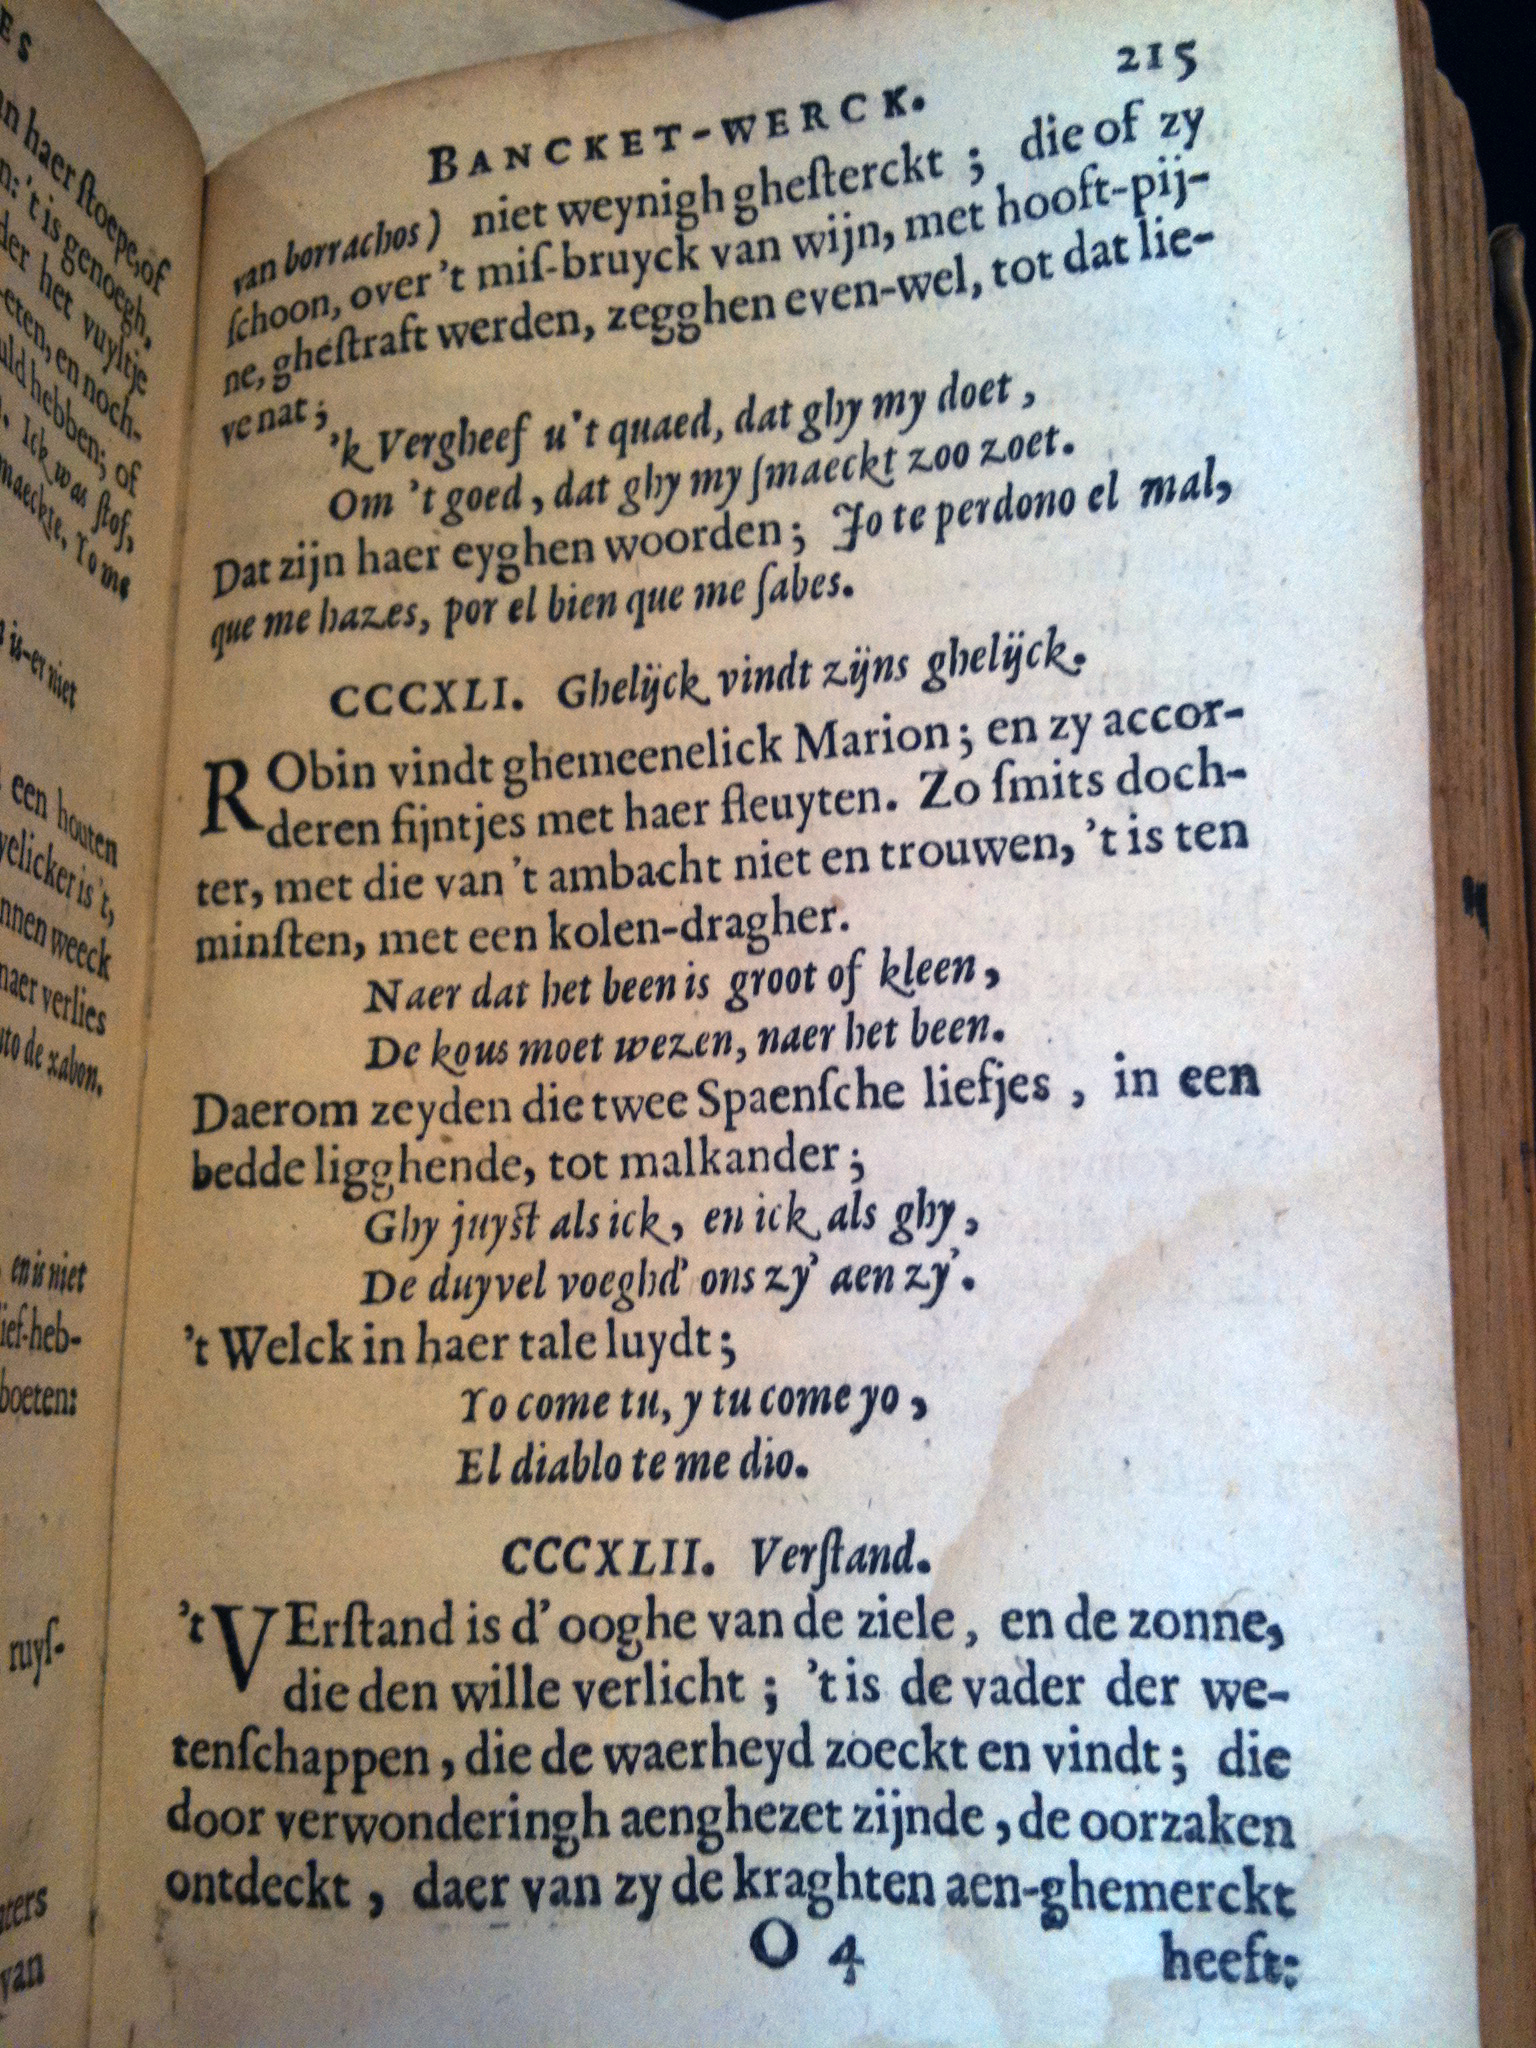 ES
n haer ſtoepe, of
n: 't is genoegh,
der het vuyltje
eten, en noch-
uld hebben; of
. Ick was ſtof,
maeckte, Yo me
is-er niet
een houten
velicker is 't,
nnen weeck
naer verlies
uto de xabon.
en is niet
ief-heb-
boeten:
ruyſ-
nters
van
215
BANCKET-WERCK.
van borrachos) niet weynigh gheſterckt ; die of zy
ſchoon, over 't miſ-bruyck van wijn, met hooft-pij-
ne, gheſtraft werden, zegghen even-wel, tot dat lie-
ve nat;
'k Vergheef u 't quaed, dat ghy my doet,
Om 't goed, dat ghy my ſmaeckt zoo zoet.
Dat zijn haer eyghen woorden; Jo te perdono el mal,
que me hazes, por el bien que me ſabes.
CCCXLI. Ghelijck vindt zijns ghelijck.
RObin vindt ghemeenelick Marion; en zy accor-
deren fijntjes met haer fleuyten. Zo ſmits doch-
ter, met die van 't ambacht niet en trouwen, 't is ten
minſten, met een kolen-dragher.
Naer dat het been is groot of kleen,
De kous moet wezen, naer het been.
Daerom zeyden die twee Spaenſche liefjes, in een
bedde ligghende, tot malkander;
Ghy juyſt als ick, en ick als ghy,
De duyvel voeghd' ons zy' aen zy'.
't Welck in haer tale luydt;
Yo come tu, y tu come yo,
El diablo te me dio.
CCCXLII. Verſtand.
't VErſtand is d' ooghe van de ziele, en de zonne,
die den wille verlicht; 't is de vader der we-
tenſchappen, die de waerheyd zoeckt en vindt; die
door verwonderingh aenghezet zijnde, de oorzaken
ontdeckt, daer van zy de kraghten aen-ghemerckt
O 4
heeft: